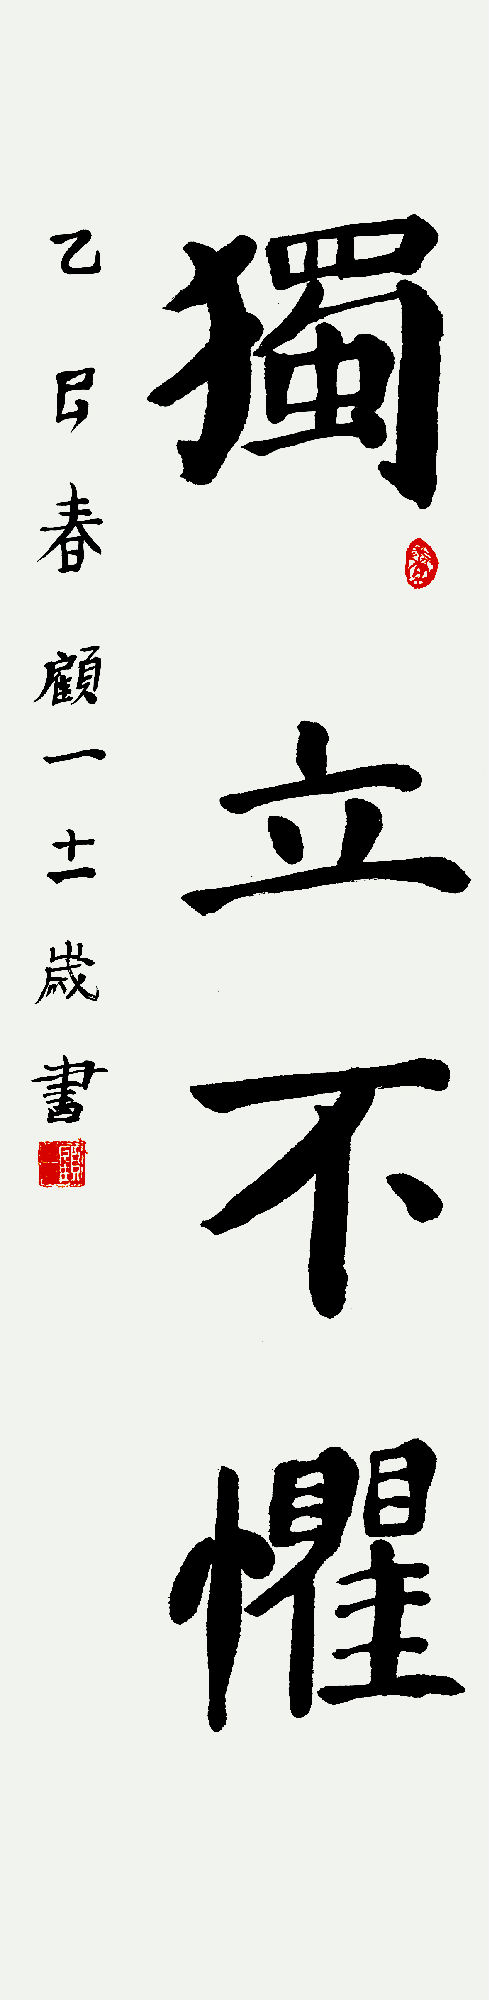 獨立不懼
乙巳春顧一十一歲書